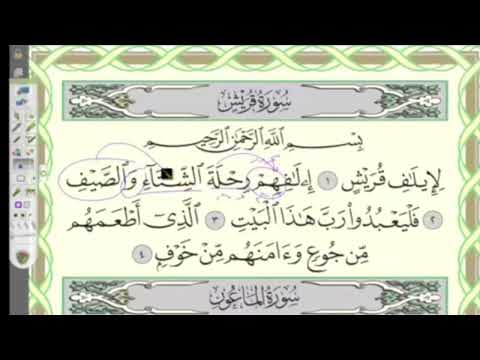 سُورَةُ قُرَيْشٍ
بِسْمِ اللَّهِ الرَّحْمَٰنِ الرَّحِيمِ
لِإِيلَٰفِ قُرَيْشٍ ١ إِۦلَٰفِهِمْ رِحْلَةَ الشِّتَآءِ وَالصَّيْفِ
٢ فَلْيَعْبُدُوا۟ رَبَّ هَٰذَا الْبَيْتِ ٣ الَّذِىٓ أَطْعَمَهُم
مِّن جُوعٍ وَءَامَنَهُم مِّنْ خَوْفٍۭ ٤
سُورَةُ الْمَاعُونِ